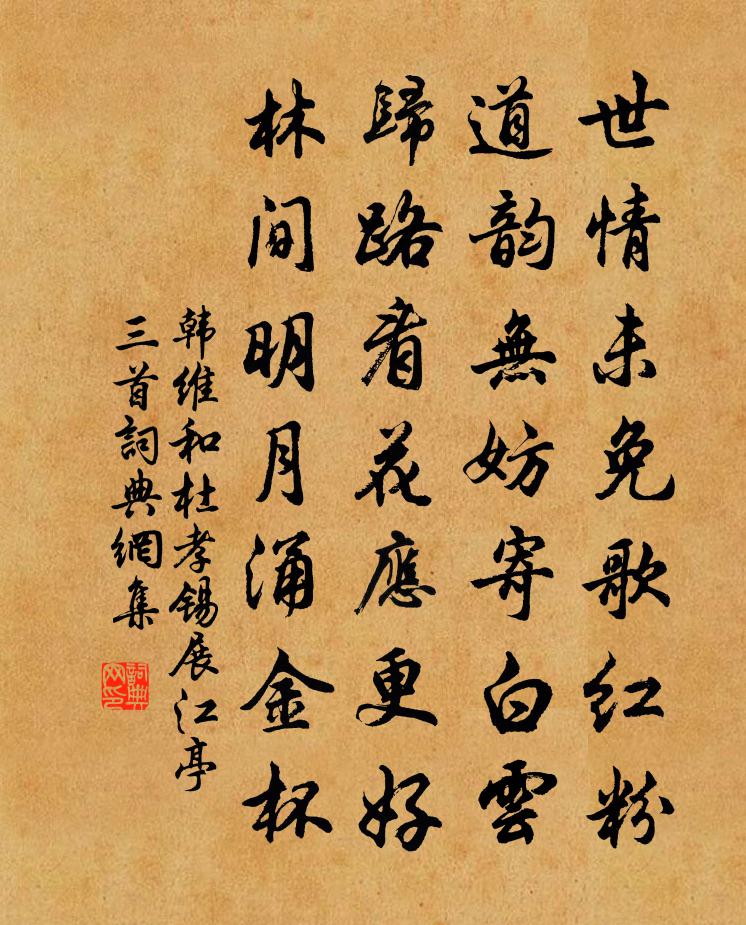 世情未免歌红粉
道韵無妨寄白雲
歸路看花應更好
林间明月涌金杯
韩维和杜孝锡展江亭
三首詞典網集
詞典
网印